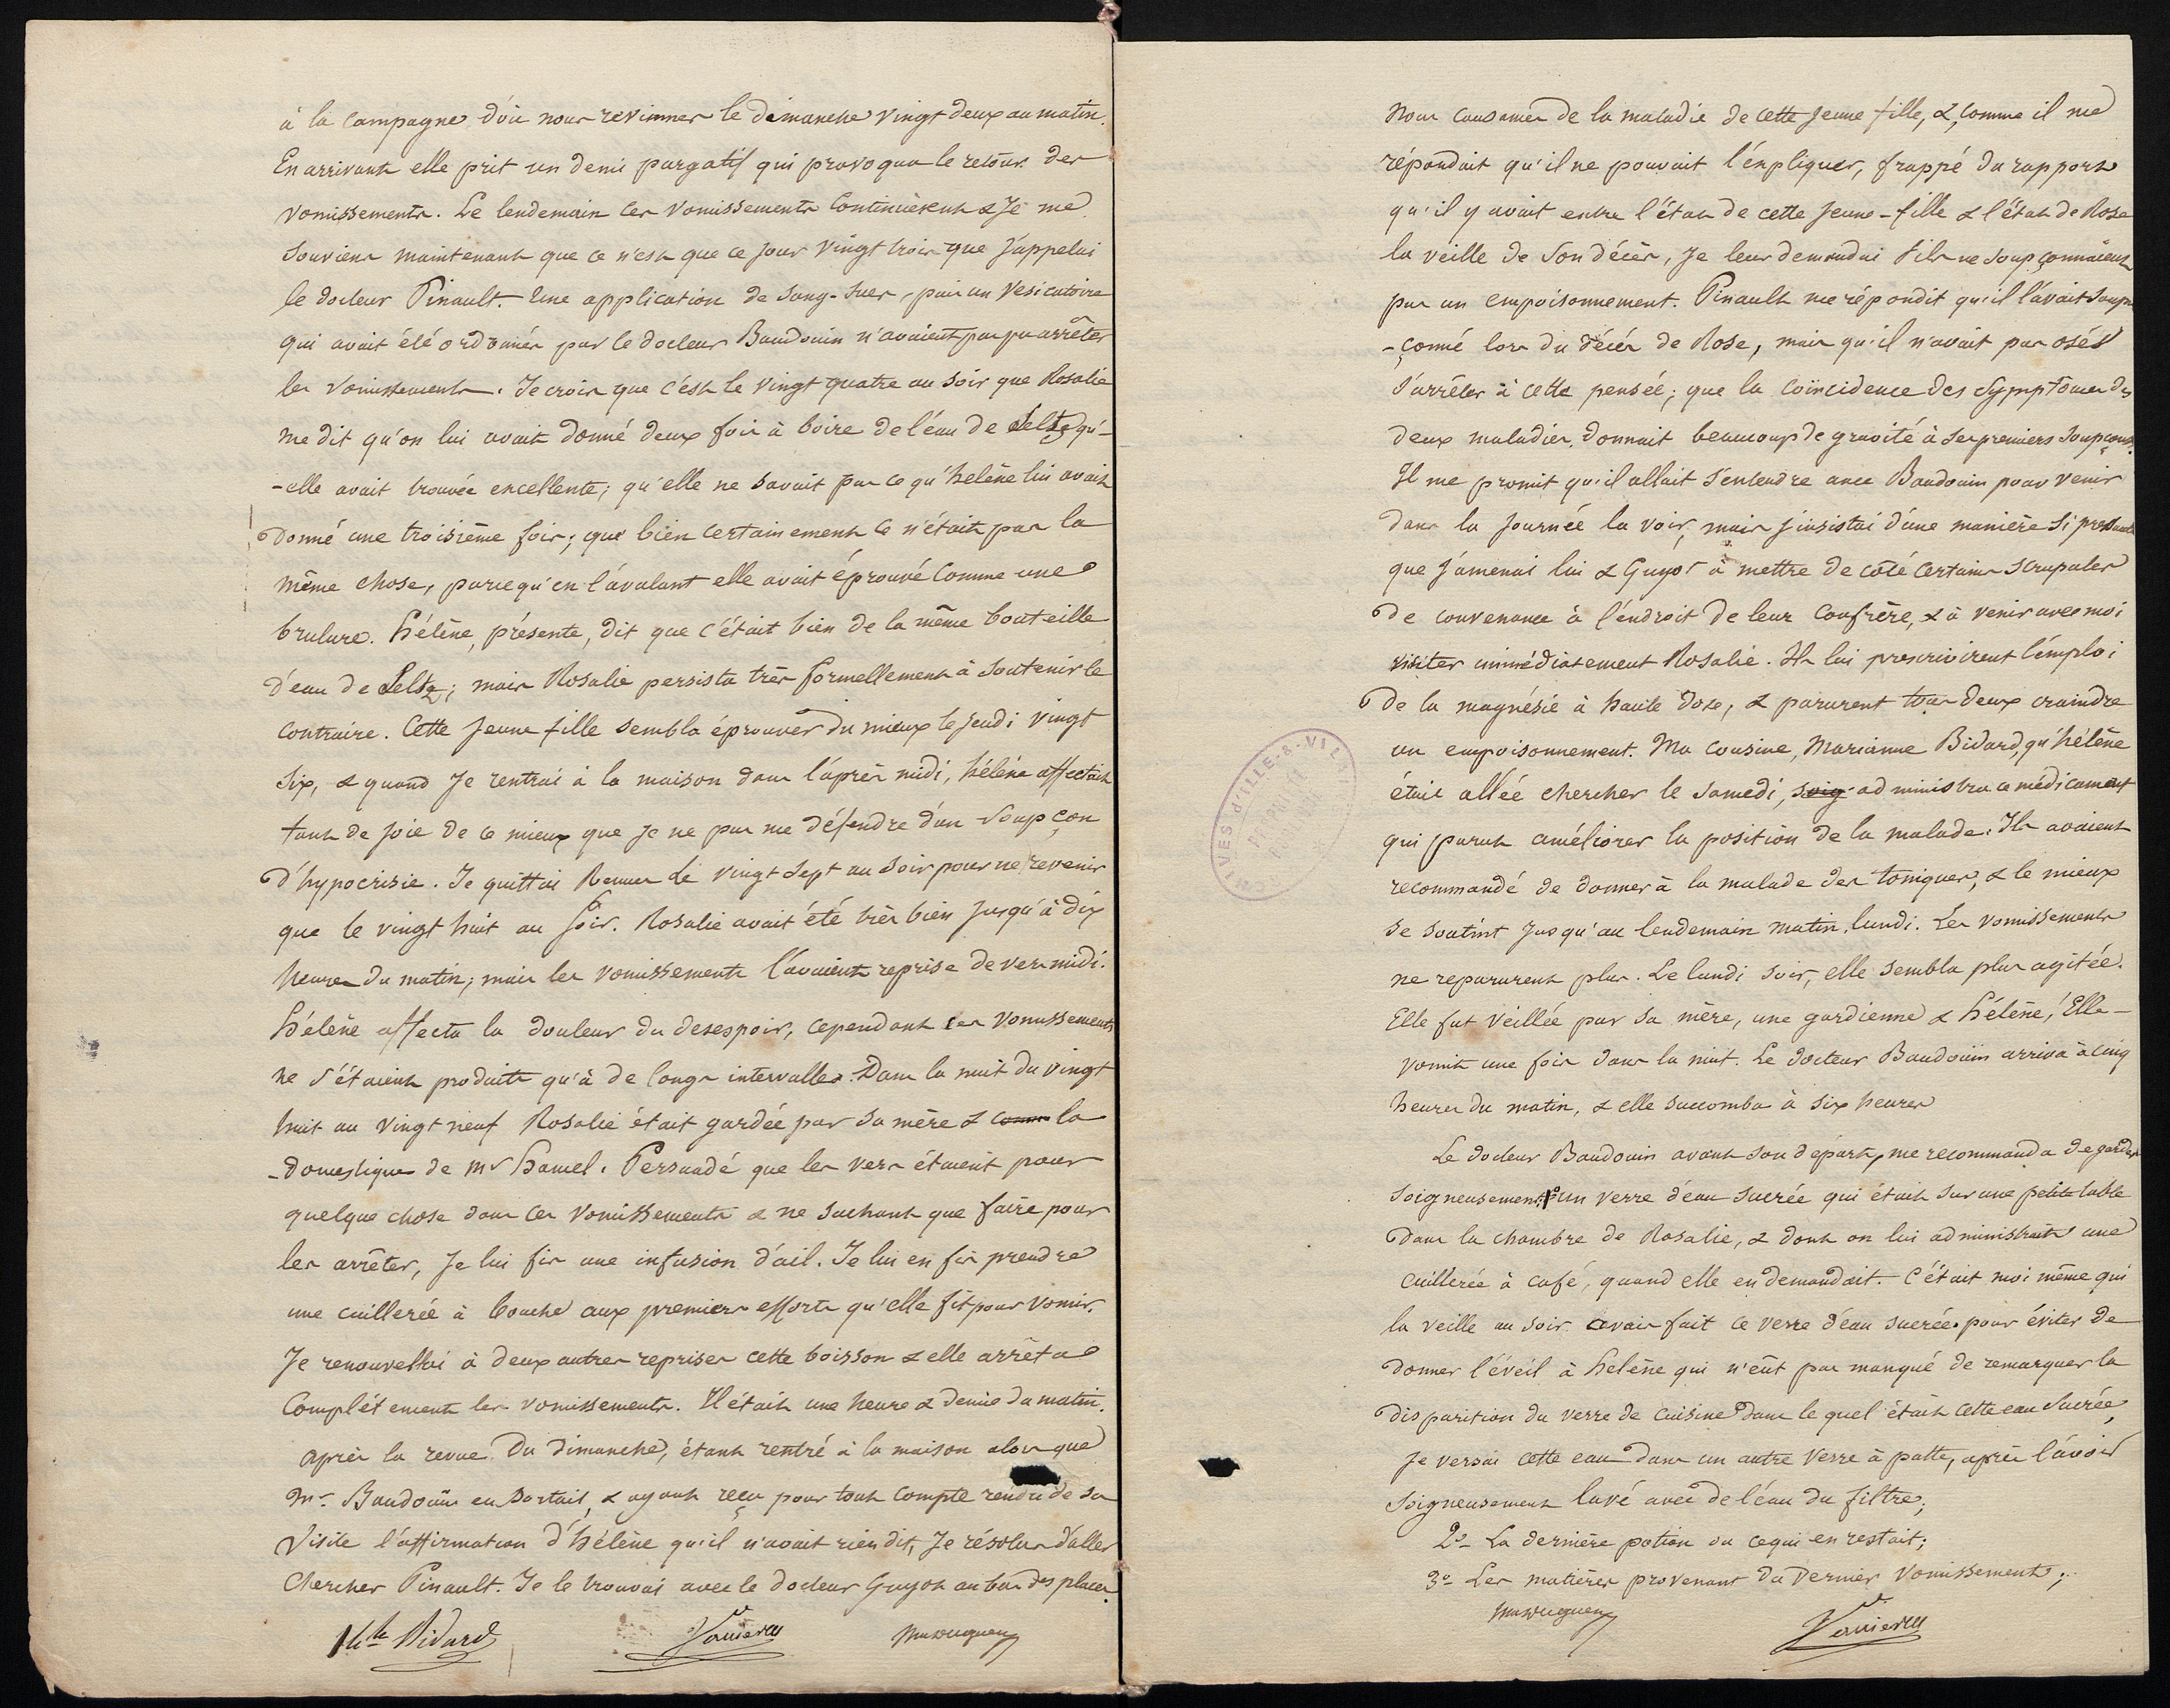 à la campagne d'où nous revinmes le dimanche vingt deux au matin.
En arrivant elle prit un demi purgatif qui provoqua le retour des
vomissements. Le lendemain ces vomissements continuèrent & je me
souviens maintenant que ce n'est que ce jour vingt trois que j'appelai
le docteur Pinault. Une application de sang-sues, puis un vesicatoire
qui avait été ordonnés par le docteur Baudouin n'avaient pas pu arrêter
les vomissements. Je crois que c'est le vingt quatre au soir que Rosalie
me dit qu'on lui avait donné deux fois à boire de l'eau de Seltz qu'-
-elle avait trouvée excellente; qu'elle ne savait pas ce qu'helène lui avait
donné une troisième fois; que bien certainement ce n'était pas la
même chose, parcequ'en l'avalant elle avait éprouvé comme une
brulure. Hélène, présente, dit que c'était bien de la même bouteille
d'eau de Seltz; mais Rosalie persista très formellement à soutenir le
contraire. Cette jeune fille sembla éprouver du mieux le jeudi vingt
six, & quand je rentrai à la maison dans l'après midi, hélène affectait
tant de joie de ce mieux que je ne pus me défendre d'un soupçon
d'hypocrisie. Je quittai Rennes le vingt sept au soir pour ne revenir
que le vingt huit au soir. Rosalie avait été très bien jusqu'à dix
heures du matin; mais les vomissements l'avaient reprise devers midi.
Hélène affecta la douleur du desespoir, cependant ces vomissements
ne s'étaient produits qu'à de longs intervalles. Dans la nuit du vingt
huit au vingt neuf Rosalie était gardée par sa mère & comm la
-domestique de mr hamel. Persuadé que les vers étaient pour
quelque chose dans ces vomissements & ne sachant que faire pour
les arrêter, je lui fis une infusion d'ail. Je lui en fis prendre
une cuillerée à bouche aux premiers efforts qu'elle fit pour vomir.
Je renouvellai à deux autres reprises cette boisson & elle arrêta
complétement les vomissements. Il était une heure & demie du matin.
après la revue du dimanche, étant rentré à la maison alors que
Mr. Baudouin en sortait, & ayant reçu pour tout compte rendu de sa
visite l'affirmation d'hélène qu'il n'avait rien dit, je résolus d'aller
chercher Pinault. Je le trouvai avec le docteur Guyot au bas des places.
Bidard
Nous causames de la maladie de cette jeune fille, &, comme il me
répondait qu'il ne pouvait l'expliquer, frappé du rapport
qu'il y avait entre l'état de cette jeune-fille & l'état de Rose
la veille de son décès, je leur demandai s'ils ne soupçonnaient
pas un empoisonnement. Pinault me répondit qu'il l'avait soup-
-çonné lors du décès de Rose, mais qu'il n'avait pas osé
s'arrêter à cette pensée; que la coïncidence des symptômes des
deux maladies, donnait beaucoup de gravité à ses premiers soupçons.
Il me promit qu'il allait s'entendre avec Baudouin pour venir
dans la journée la voir, mais j'insistai d'une manière si pressante
que j'amenai lui & Guyot à mettre de côté certains scrupules
de convenance à l'endroit de leur confrère, & à venir avec moi
visiter immédiatement Rosalie. Ils lui prescrivirent l'emploi
de la magnésie à haute dose, & parurent tous deux craindre
un empoisonnement. Ma cousine, Marianne Bidard, qu'hélène
était allée chercher le samedi, soig administra ce médicament
qui parut améliorer la position de la malade. Ils avaient
recommandé de donner à la malade des toniques, & le mieux
se soutint jusqu'au lendemain matin, lundi. Les vomissements
ne reparurent plus. Le lundi soir, elle sembla plus agitée.
Elle fut veillée par sa mère, une gardienne & hélène, Elle
vomit une fois dans la nuit. Le docteur Baudouin arriva à cinq
heures du matin, & elle succomba à six heures
Le docteur Baudouin avant son départ, me recommanda de garder
soigneusement 1° un verre d'eau sucrée qui était sur une petite table
dans la chambre de Rosalie, & dont on lui administrait une
cuillerée à café, quand elle en demandait. C'était moi même qui
la veille au soir avais fait ce verre d'eau sucrée. pour éviter de
donner l'éveil à helène qui n'eût pas manqué de remarquer la
disparition du verre de cuisine dans lequel était cette eau sucrée,
je versai cette eau dans un autre verre à patte, après l'avoir
soigneusement lavé avec de l'eau du filtre;
2°- La dernière potion ou ce qui en restait;
3°- Les matières provenant du dernier vomissement;
ARCHIVES d'ILLE-&-VILAINE